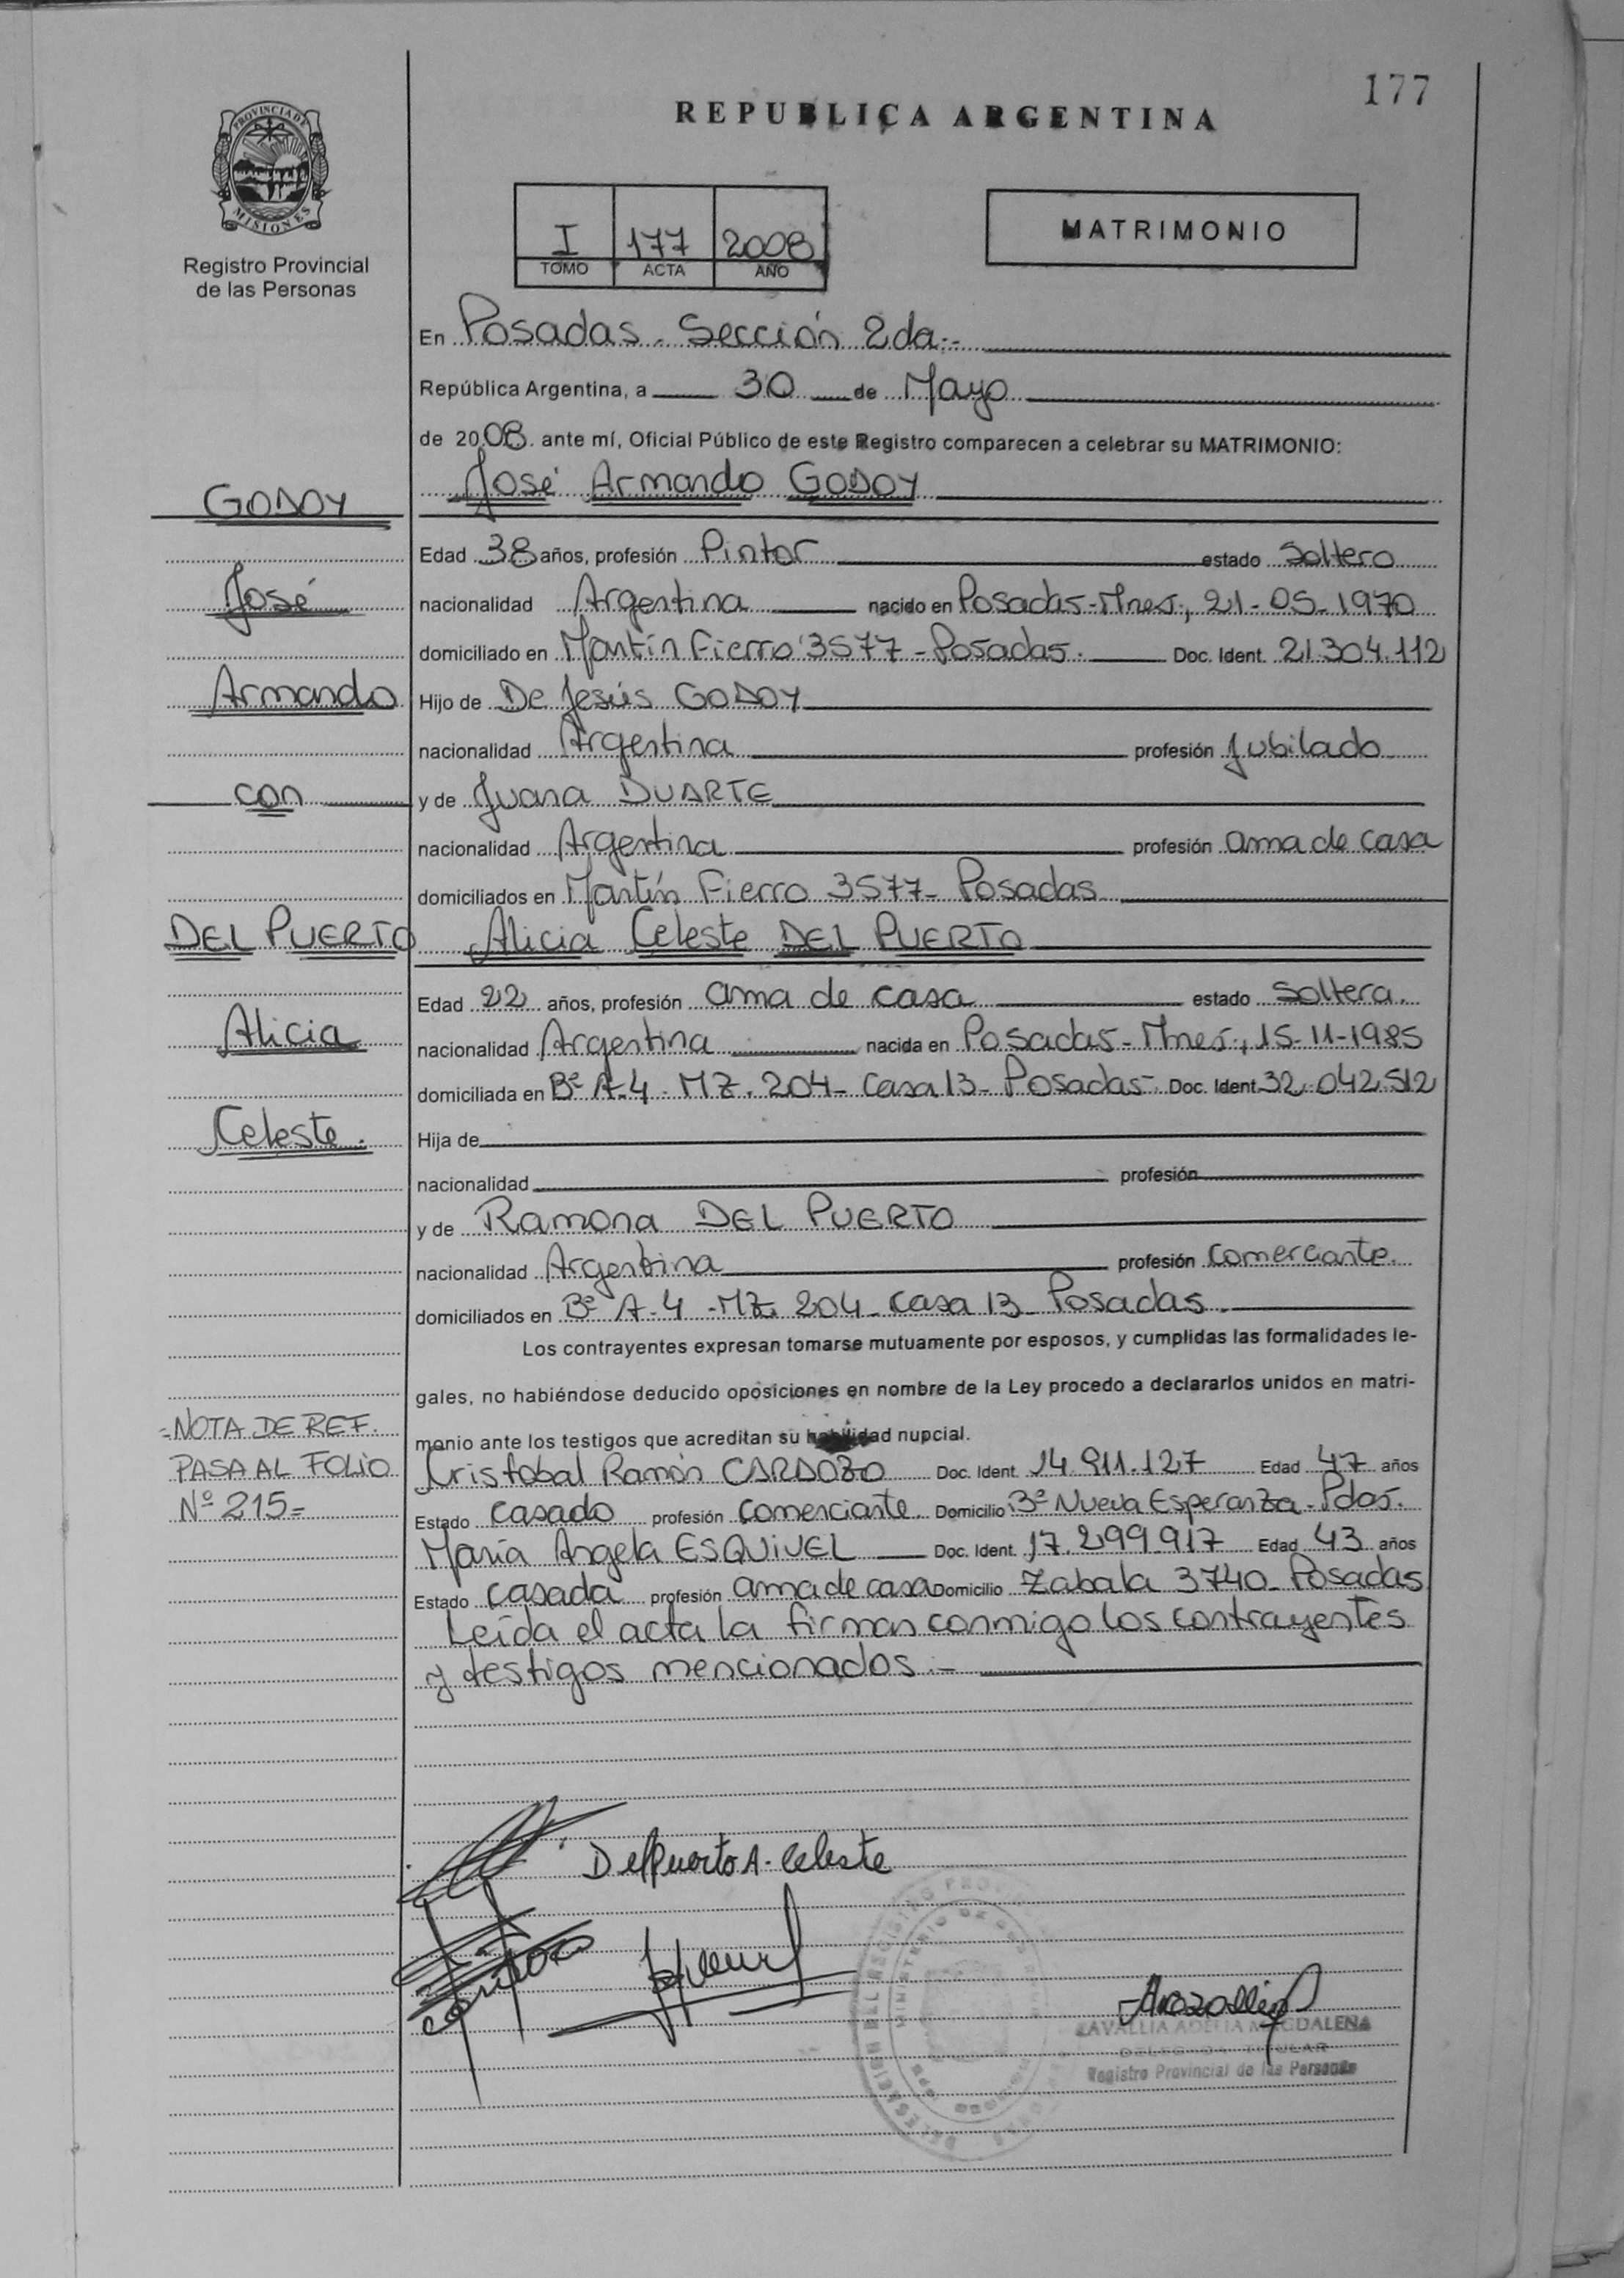 177
REPUBLICA ARGENTINA
PROVINCIA DE
MISIONES
Registro Provincial
de las Personas
I 177 2008
TOMO ACTA AÑO
MATRIMONIO
En Posadas - Sección 2da.-
República Argentina, a 30 de Mayo
de 2008. ante mí, Oficial Público de este Registro comparecen a celebrar su MATRIMONIO:
GODOY José Armando GODOY
Edad 38 años, profesión Pintor estado Soltero
José nacionalidad Argentina nacido en Posadas-Mnes., 21-05-1970
domiciliado en Martín Fierro 3577 - Posadas. Doc. Ident. 21.304.112
Armando Hijo de De Jesús GODOY
nacionalidad Argentina profesión Jubilado
con y de Juana DUARTE
nacionalidad Argentina profesión ama de casa
domiciliados en Martín Fierro 3577- Posadas
DEL PUERTO Alicia Celeste DEL PUERTO
Edad 22 años, profesión ama de casa estado Soltera.
Alicia nacionalidad Argentina nacida en Posadas - Mnes., 15-11-1985
domiciliada en Bº A-4 - MZ. 204 - Casa 13 - Posadas- Doc. Ident. 32.042.512
Celeste. Hija de
nacionalidad profesión
y de Ramona DEL PUERTO
nacionalidad Argentina profesión comerciante.
domiciliados en Bº A-4 -MZ. 204 - Casa 13 - Posadas.
Los contrayentes expresan tomarse mutuamente por esposos, y cumplidas las formalidades le-
gales, no habiéndose deducido oposiciones en nombre de la Ley procedo a declararlos unidos en matri-
monio ante los testigos que acreditan su habilidad nupcial.
-NOTA DE REF.
PASA AL FOLIO
Nº 215=
Cristobal Ramón CARDOZO Doc. Ident. 14.911.127 Edad 47 años
Estado casado profesión comerciante. Domicilio Bº Nueva Esperanza - Pdas.
María Angela ESQUIVEL Doc. Ident. 17.299.917 Edad 43 años
Estado casada profesión ama de casa Domicilio Zabala 3740 - Posadas
Leída el acta la firman conmigo los contrayentes
y testigos mencionados.-
Del Puerto A. Celeste
ZAVALLIA ADELIA MAGDALENA
TITULAR
Registro Provincial de las Personas